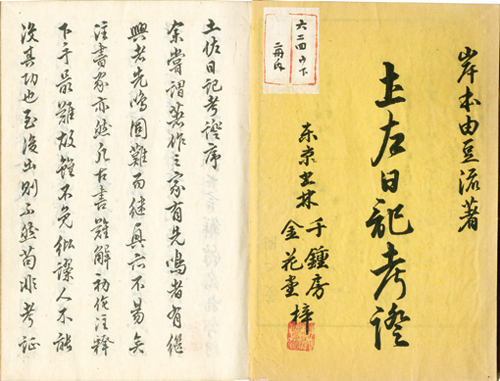 岸本由豆流著
土左日記考證
東京書林
千鍾房
金花堂
梓
六二四
土佐日記考證序
余嘗謂著作之家有先鳴者有継
興者先鳴固難而継興亦不易矣
注書家亦然凡古書難解初作注釋
下手最難故雖不免紕謬人不能
没其功也至後出則不然苟非考証